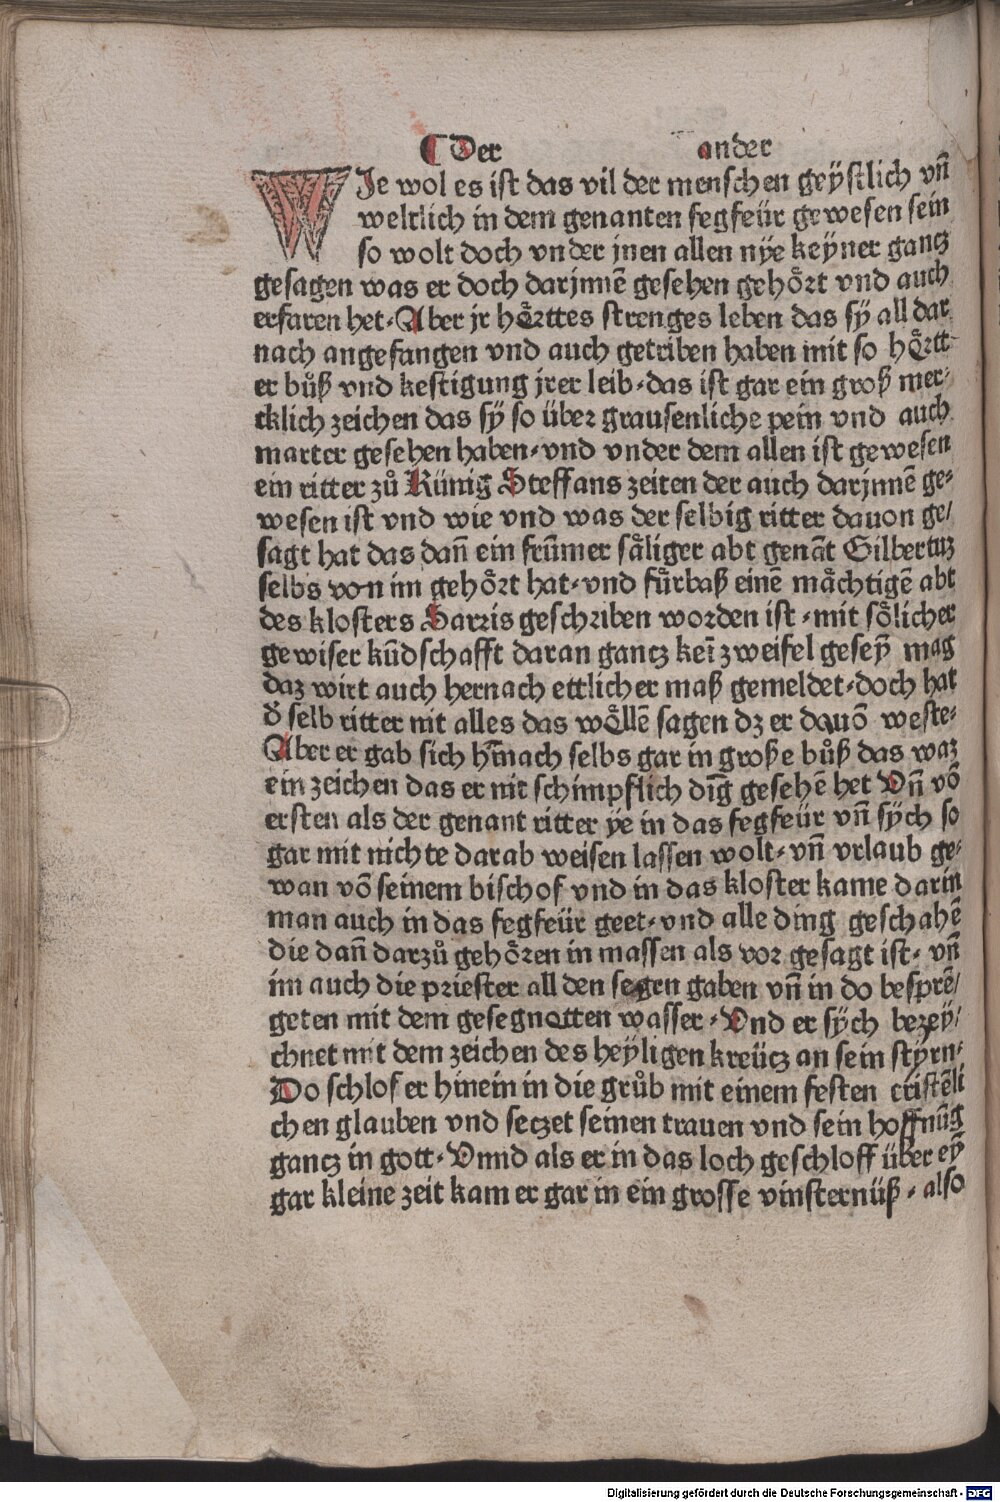 ¶ Der ander
WJe wol es ist das vil der menschen geÿstlich vn̄
weltlich in dem genanten fegfeür gewesen sein
so wolt doch vnder jnen allen nÿe keyner gancz
gesagen was er doch darjnnē gesehen gehoͤrt vnd auch
erfaren het. Aber jr hoͤrttes strenges leben das sÿ all dar
nach angefangen vnd auch getriben haben mit so hoͤrtt
er buͦß vnd kestigung jrer leib. das ist gar ein groß mer⸗
cklich zeichen das sÿ so über grausenliche pein vnd auch
marter gesehen haben. vnd vnder dem allen ist gewesen
ein ritter zuͦ Künig Steffans zeiten der auch darjnnē ge⸗
wesen ist vnd wie vnd was der selbig ritter dauon ge/
sagt hat das dan̄ ein frūmer saͤliger abt genāt Gilbertuz
selbs von im gehoͤrt hat. vnd fürbaß einē maͤchtigē abt
des klosters Sarris geschriben worden ist. mit soͤlicher
gewiser kūdschafft daran gancz keī zweifel geseÿ mag
daz wirt auch hernach ettlicher maß gemeldet. doch hat
d̄ selb ritter nit alles das woͤllē sagen dz er dauō weste.
Aber er gab sich h̄nach selbs gar in große buͦß das waz
ein zeichen das er nit schimpflich dīg gesehē het Vn̄ vō
ersten als der genant ritter ÿe in das fegfeür vn̄ sÿch so
gar mit nichte darab weisen lassen wolt. vn̄ vrlaub ge⸗
wan vō seinem bischof vnd in das kloster kame darin
man auch in das fegfeür geet. vnd alle ding geschahē
die dan̄ darzuͦ gehoͤren in massen als vor gesagt ist. vn̄
im auch die priester all den segen gaben vn̄ in do besprē/
geten mit dem gesegnotten wasser. Vnd er sÿch bezeÿ/
chnet mit dem zeichen des heÿligen kreücz an sein stÿrn.
Do schlof er hinein in die gruͦb mit einem festen cristēli
chen glauben vnd seczet seinen trauen vnd sein hoffnūg
gancz in gott. Vnnd als er in das loch geschloff über eÿ
gar kleine zeit kam er gar in ein grosse vinsternüß. also
Digitalisierung gefördert durch die Deutsche Forschungsgemeinschaft - DFG